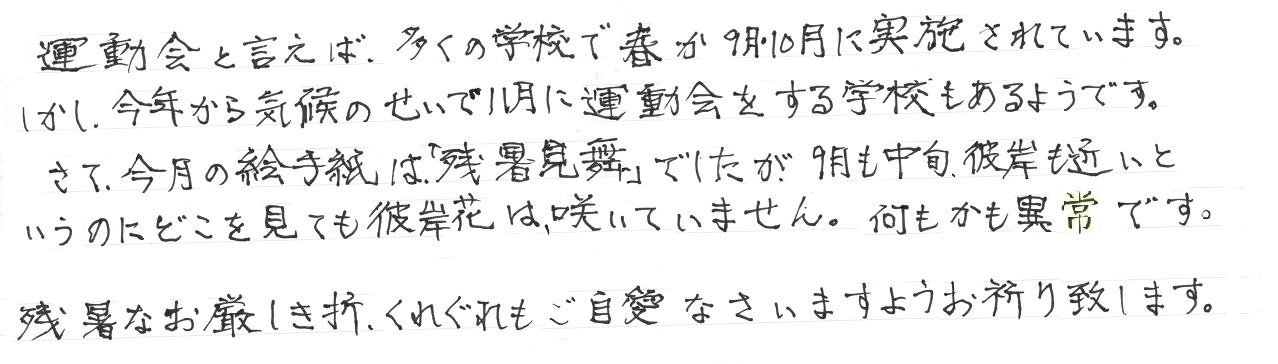 運動会と言えば、多くの学校で春か9月・10月に実施されています。
しかし、今年から気候のせいで11月に運動会をする学校もあるようです。
さて、今月の絵手紙は、「残暑見舞」でしたが、9月も中旬、彼岸も近いと
いうのにどこを見ても彼岸花は、咲いていません。何もかも異常です。
残暑なお厳しき折、くれぐれもご自愛なさいますようお祈り致します。